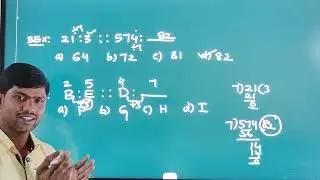 35Ex: 21 : 3 :: 574 : 82
÷7
÷7
a) 64 b) 72 c) 81 d) 82
2 5 4 7
B : E :: D : ___
+3 +3
a) F b) G c) H d) I
7) 21 (3
21
0
7) 574 (82
56
14
14
0